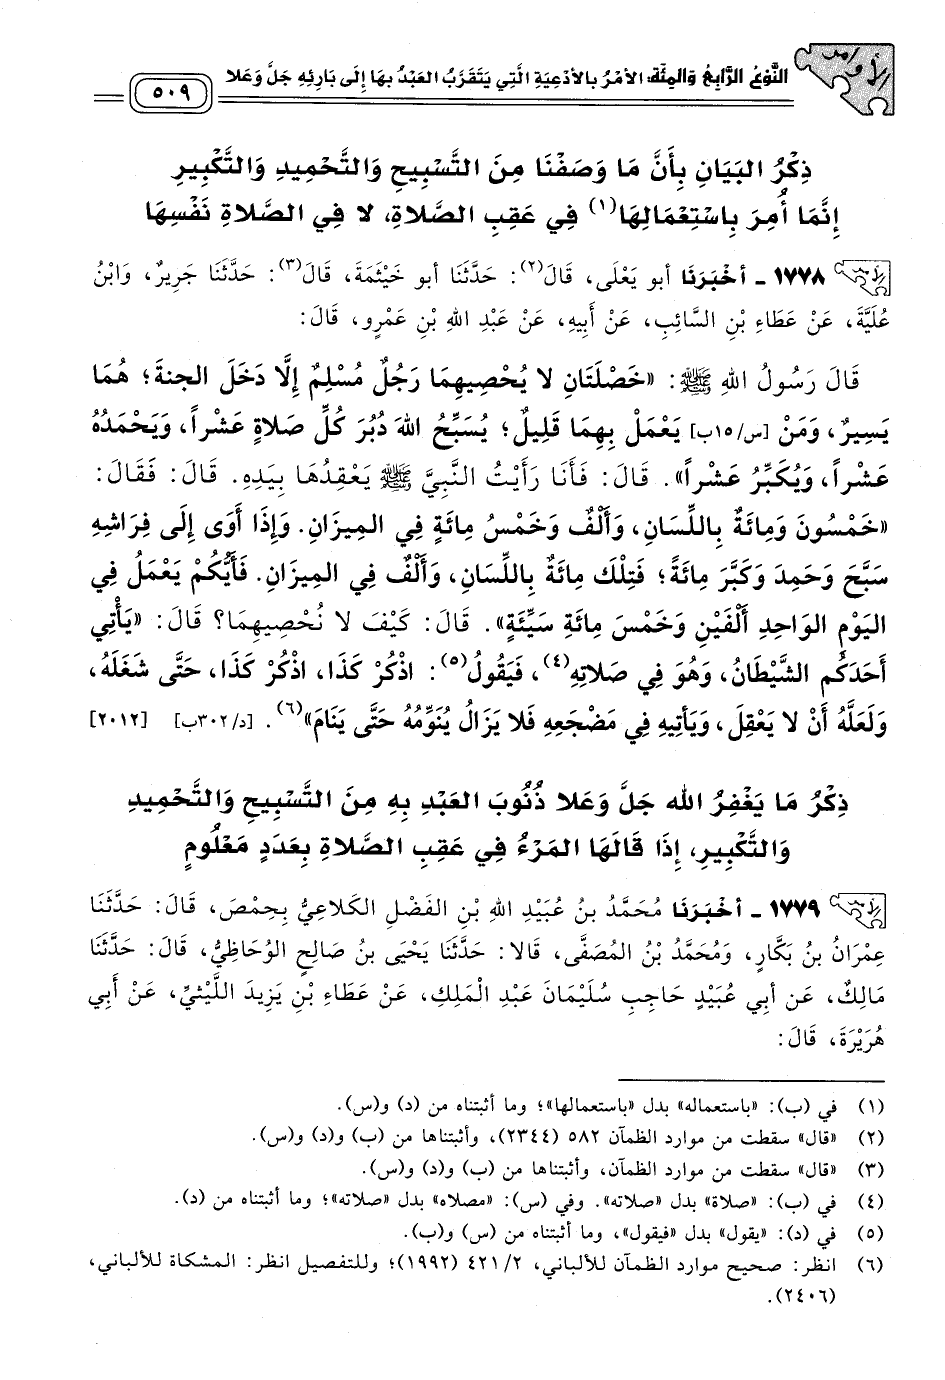 الأوامر
النَّوْعُ الرَّابِعُ وَالمِئَة: الأَمْرُ بِالأَدْعِيَةِ الَّتِي يَتَقَرَّبُ العَبْدُ بِهَا إِلَى بَارِئِهِ جَلَّ وَعَلا
٥٠٩
ذِكْرُ البَيَانِ بِأَنَّ مَا وَصَفْنَا مِنَ التَّسْبِيحِ وَالتَّحْمِيدِ وَالتَّكْبِيرِ
إِنَّمَا أُمِرَ بِاسْتِعْمَالِهَا(١) فِي عَقِبِ الصَّلاةِ، لا فِي الصَّلاةِ نَفْسِهَا
١٧٧٨ - أخْبَرَنَا أبو يَعْلَى، قَالَ(٢): حَدَّثَنَا أبو خَيْثَمَةَ، قَالَ(٣): حَدَّثَنَا جَرِيرٌ، وَابْنُ
عُلَيَّةَ، عَنْ عَطَاءِ بْنِ السَّائِبِ، عَنْ أَبِيهِ، عَنْ عَبْدِ اللهِ بْنِ عَمْرٍو، قَالَ:
قَالَ رَسُولُ اللهِ ﷺ: «خَصْلَتَانِ لا يُحْصِيهِمَا رَجُلٌ مُسْلِمٌ إِلَّا دَخَلَ الجنةَ؛ هُمَا
يَسِيرٌ، وَمَنْ [س/١٥ب] يَعْمَلْ بِهِمَا قَلِيلٌ؛ يُسَبِّحُ اللهَ دُبُرَ كُلِّ صَلاةٍ عَشْراً، وَيَحْمَدُهُ
عَشْراً، وَيُكَبِّرُ عَشْراً». قَالَ: فَأَنَا رَأَيْتُ النَّبِيَّ ﷺ يَعْقِدُهَا بِيَدِهِ. قَالَ: فَقَالَ:
«خَمْسُونَ وَمِائَةٌ بِاللِّسَانِ، وَأَلْفٌ وَخَمْسُ مِائَةٍ فِي المِيزَانِ. وَإِذَا أَوَى إِلَى فِرَاشِهِ
سَبَّحَ وَحَمِدَ وَكَبَّرَ مِائَةً؛ فَتِلْكَ مِائَةٌ بِاللِّسَانِ، وَأَلْفٌ فِي المِيزَانِ. فَأَيُّكُمْ يَعْمَلُ فِي
اليَوْمِ الوَاحِدِ أَلْفَيْنِ وَخَمْسَ مِائَةِ سَيِّئَةٍ». قَالَ: كَيْفَ لا نُحْصِيهِمَا؟ قَالَ: «يَأْتِي
أَحَدَكُم الشَّيْطَانُ، وَهُوَ فِي صَلاتِهِ(٤)، فَيَقُولُ(٥): اذْكُرْ كَذَا، اذْكُرْ كَذَا، حَتَّى شَغَلَهُ،
وَلَعَلَّهُ أَنْ لا يَعْقِل، وَيَأتِيهِ فِي مَضْجَعِهِ فَلا يَزَالُ يُنَوِّمُهُ حَتَّى يَنَامَ»(٦). [د/٣٠٢ب] [٢٠١٢]
ذِكْرُ مَا يَغْفِرُ الله جَلَّ وَعَلا ذُنُوبَ العَبْدِ بِهِ مِنَ التَّسْبِيحِ وَالتَّحْمِيدِ
وَالتَّكْبِيرِ، إِذَا قَالَهَا المَرْءُ فِي عَقِبِ الصَّلاةِ بِعَدَدٍ مَعْلُومٍ
١٧٧٩ - أخْبَرَنَا مُحَمَّدُ بنُ عُبَيْدِ اللهِ بْنِ الفَضْلِ الكَلاعِيُّ بِحِمْصَ، قَالَ: حَدَّثَنَا
عِمْرَانُ بنُ بَكَّارٍ، وَمُحَمَّدُ بْنُ المُصَفَّى، قَالا: حَدَّثَنَا يَحْيَى بنُ صَالِحٍ الوُحَاظِيُّ، قَالَ: حَدَّثَنَا
مَالِكٌ، عَن أبي عُبَيْدٍ حَاجِبِ سُلَيْمَانَ عَبْدِ الْمَلِكِ، عَنْ عَطَاءِ بْنِ يَزِيدَ اللَّيْثيِّ، عَنْ أَبِي
هُرَيْرَةَ، قَالَ:
(١) في (ب): «باستعماله» بدل «باستعمالها»؛ وما أثبتناه من (د) و(س).
(٢) «قال» سقطت من موارد الظمآن ٥٨٢ (٢٣٤٤)، وأثبتناها من (ب) و(د) و(س).
(٣) «قال» سقطت من موارد الظمآن، وأثبتناها من (ب) و(د) و(س).
(٤) في (ب): «صلاة» بدل «صلاته». وفي (س): «مصلاه» بدل «صلاته»؛ وما أثبتناه من (د).
(٥) في (د): «يقول» بدل «فيقول»، وما أثبتناه من (س) و(ب).
(٦) انظر: صحيح موارد الظمآن للألباني، ٤٢١/٢ (١٩٩٢)؛ وللتفصيل انظر: المشكاة للألباني،
(٢٤٠٦).